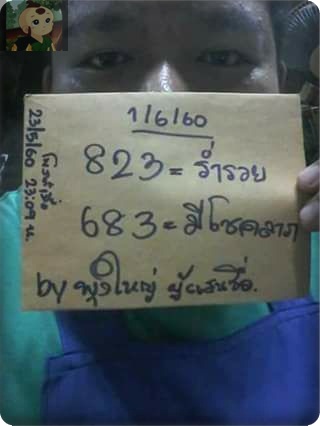 1/6/60
823 = ร่ำรวย
683 = มีโชคลาภ
by พุงใหญ่ ผู้แสนซื่อ.
23/5/60 23:09 น.